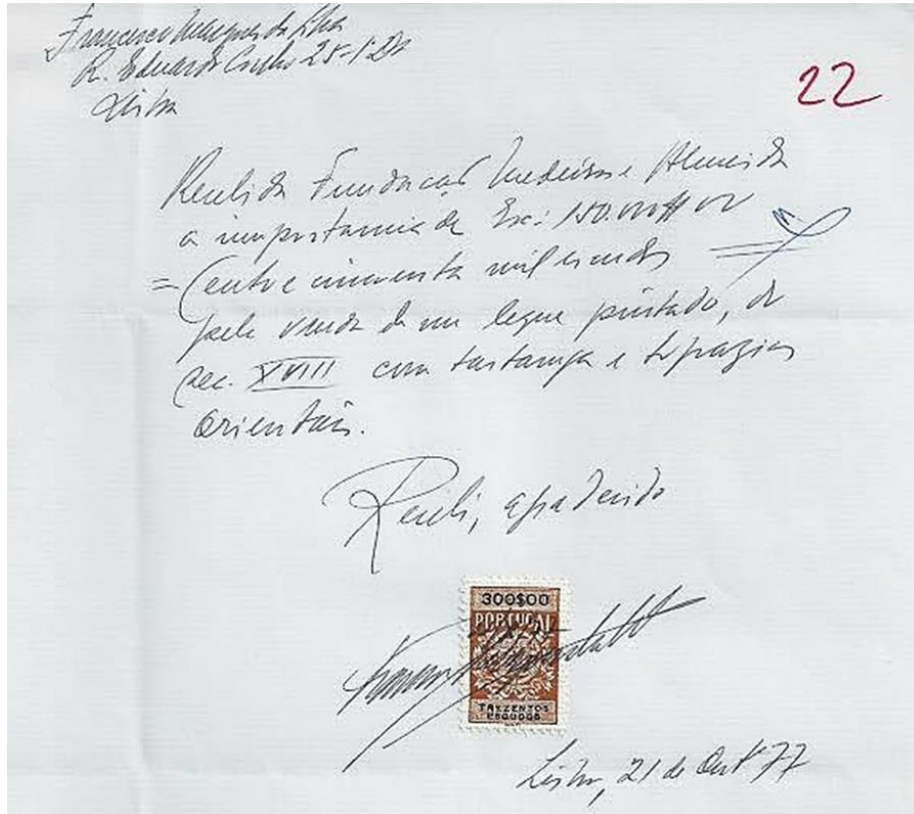 Francisco Marques da Silva
R. Eduardo Coelho 28-1º Dt
Lisboa
22
Recebi da Fundação Medeiros e Almeida
a importancia de Esc: 150.000$00
= Cento e cincoenta mil escudos =
pela venda de um leque pintado, do
sec. XVIII com tartaruga e topazios
orientais.
Recebi, agradecido
300$00
PORTUGAL
TREZENTOS
ESCUDOS
Lisboa, 21 de Outº 77